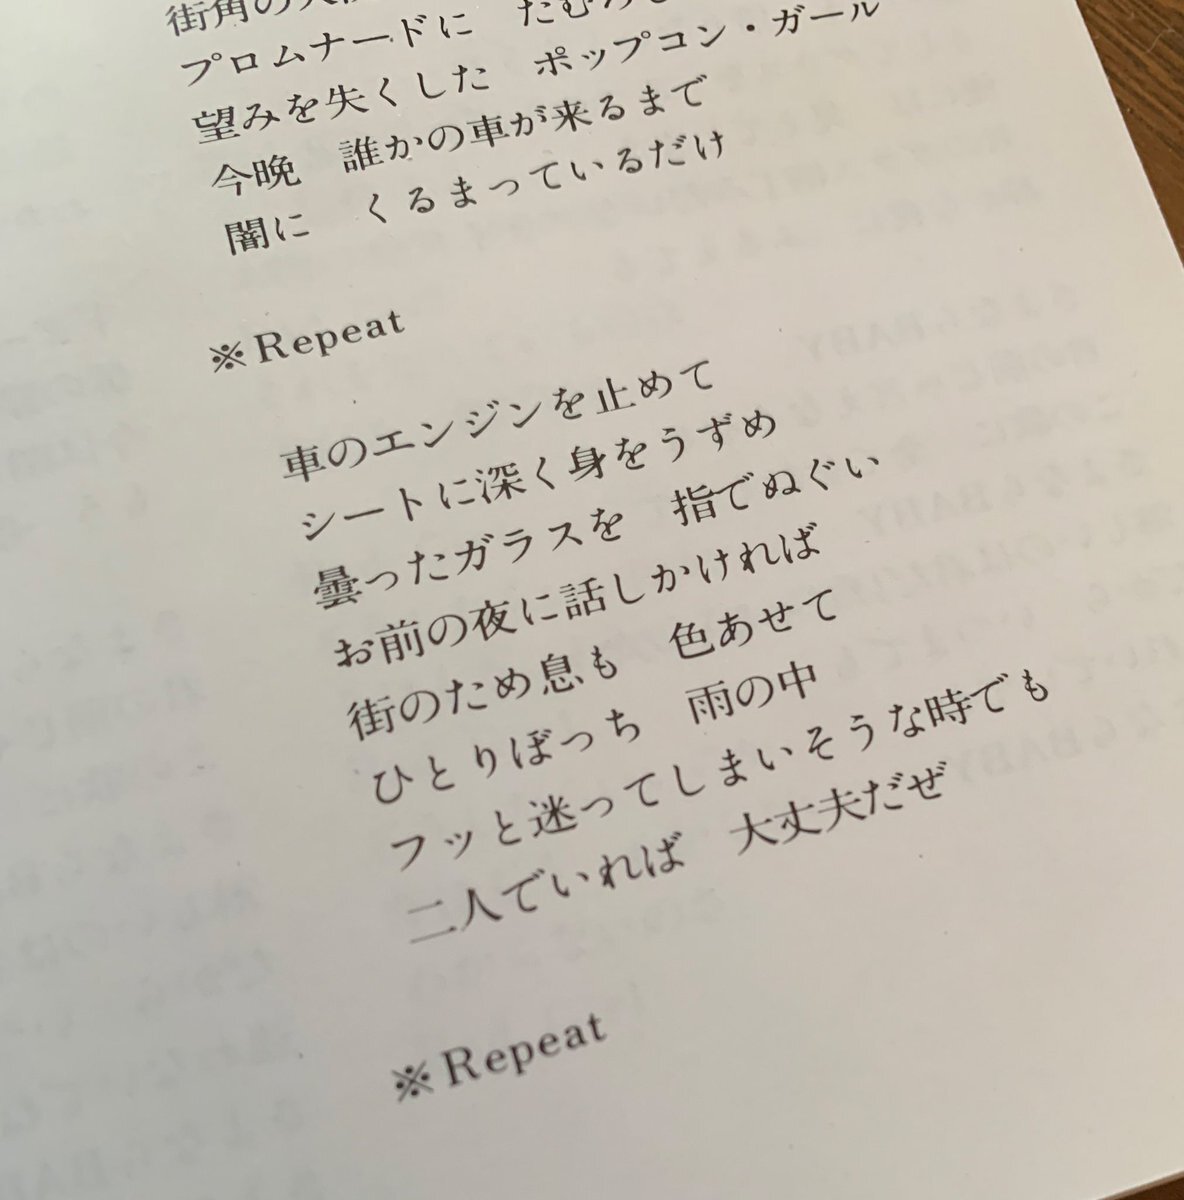 街角の
プロムナードに　たむ
望みを失くした　ポップコン・ガール
今晩　誰かの車が来るまで
闇に　くるまっているだけ
※Repeat
車のエンジンを止めて
シートに深く身をうずめ
曇ったガラスを　指でぬぐい
お前の夜に話しかければ
街のため息も　色あせて
ひとりぼっち　雨の中
フッと迷ってしまいそうな時でも
二人でいれば　大丈夫だぜ
※Repeat